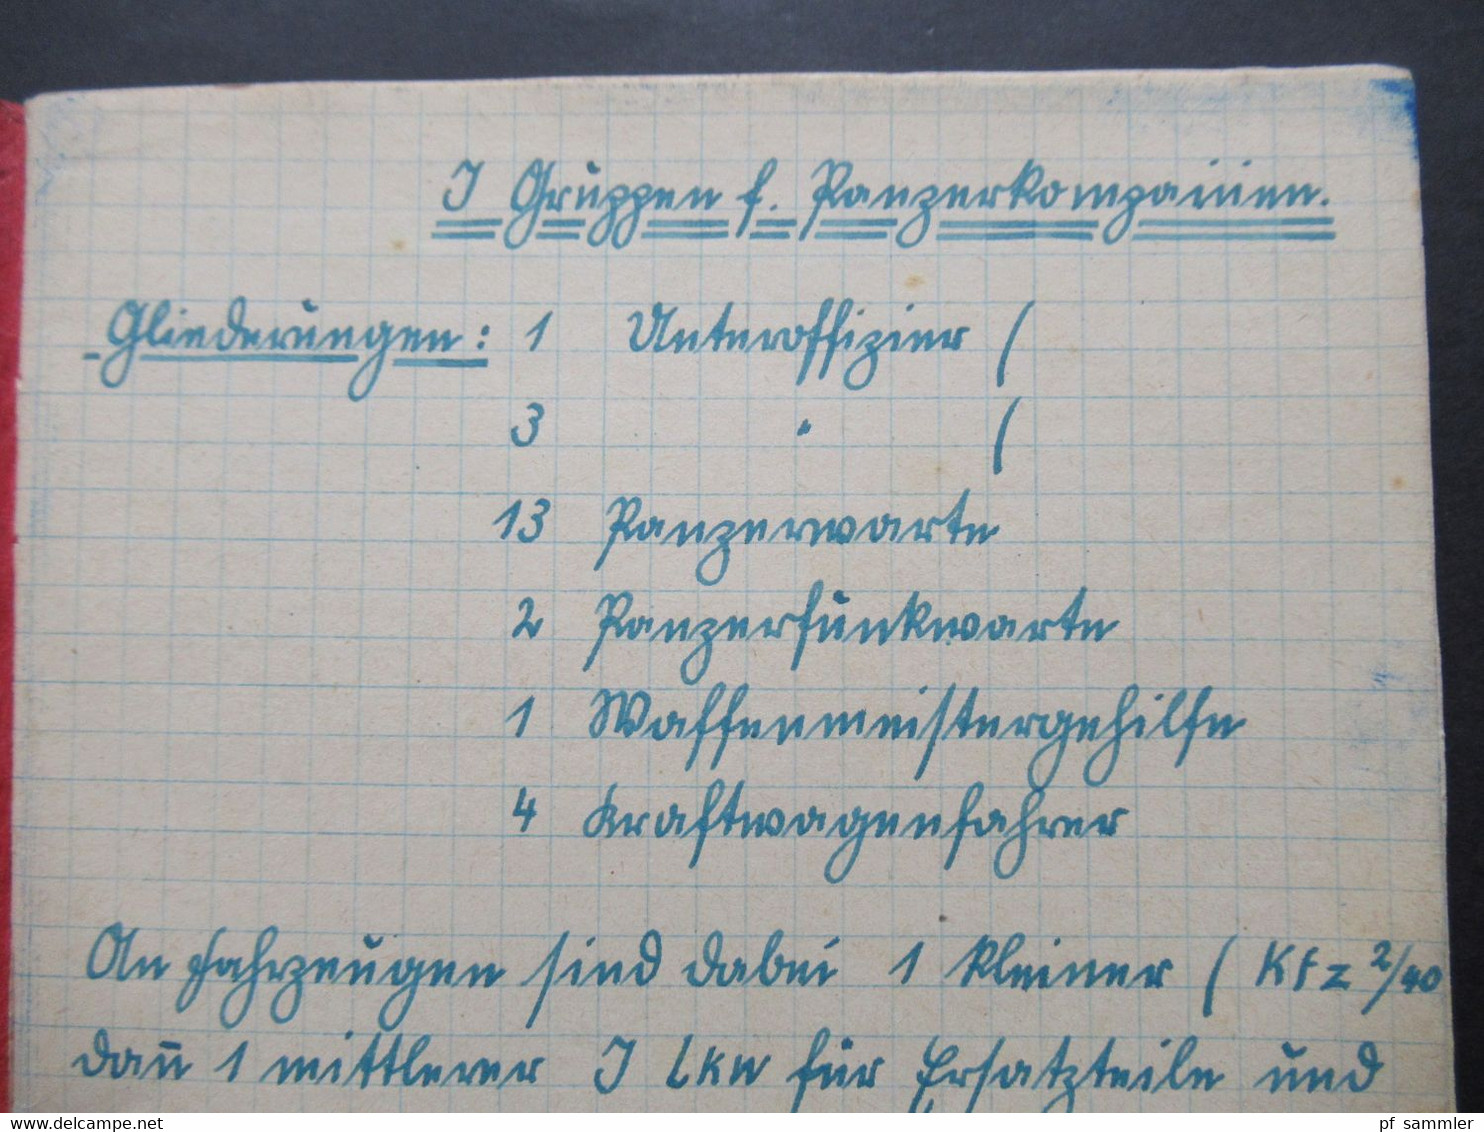 J Gruppen f. Panzerkompanien.
Gliederungen: 1 Unteroffizier (
3 " (
13 Panzerwarte
2 Panzerfunkwarte
1 Waffenmeistergehilfe
4 Kraftwagenfahrer
An Fahrzeugen sind dabei 1 kleiner ( Kfz 2/40
dan̄ 1 mittlerer J Lkw für Ersatzteile und
delcampe.net
pf_sammler